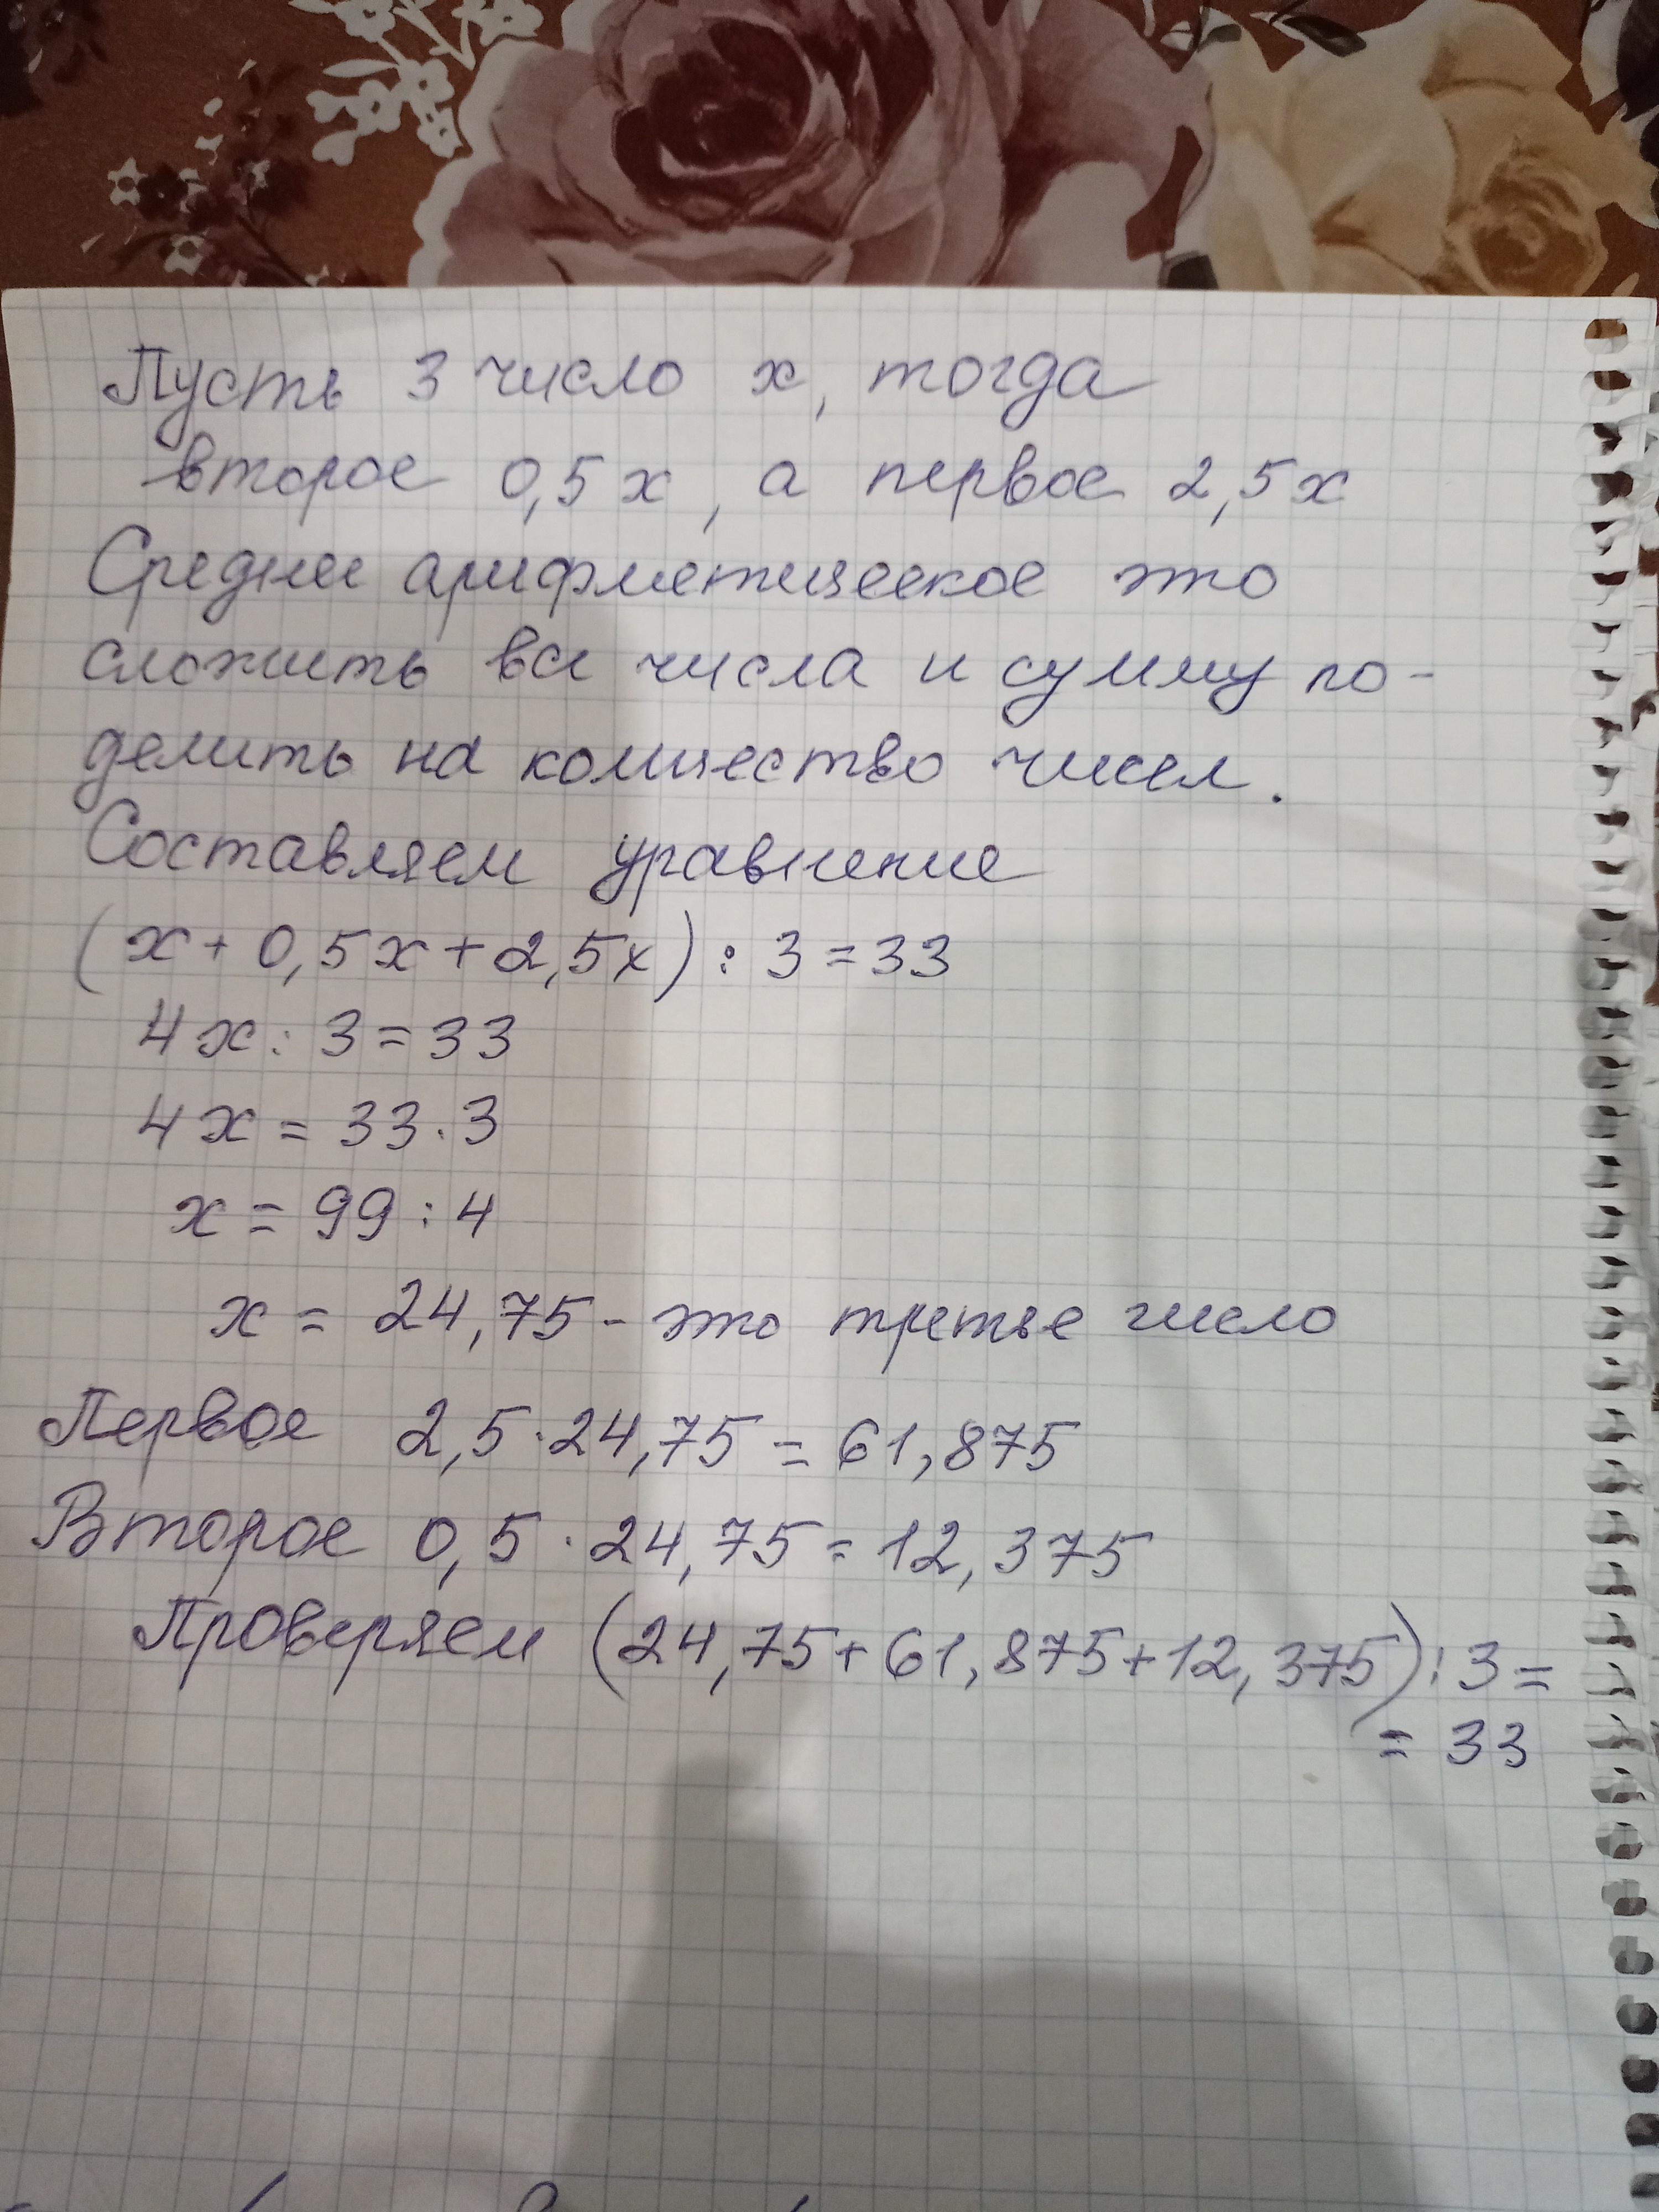 Пусть 3 число x, тогда
второе 0,5x, а первое 2,5x
Среднее арифметическое это
сложить все числа и сумму по-
делить на количество чисел.
Составляем уравнение
(x + 0,5x + 2,5x) : 3 = 33
4x : 3 = 33
4x = 33 · 3
x = 99 : 4
x = 24,75 - это третье число
Первое 2,5 · 24,75 = 61,875
Второе 0,5 · 24,75 = 12,375
Проверяем (24,75 + 61,875 + 12,375) : 3 =
= 33